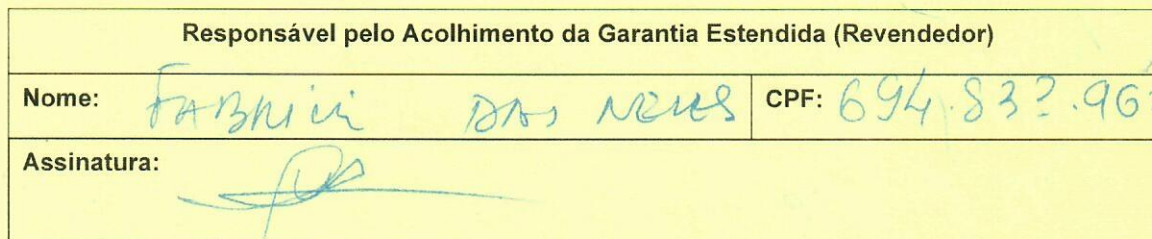 Responsável pelo Acolhimento da Garantia Estendida (Revendedor)
Nome: DAS NEVES CPF: 694.83
Assinatura: